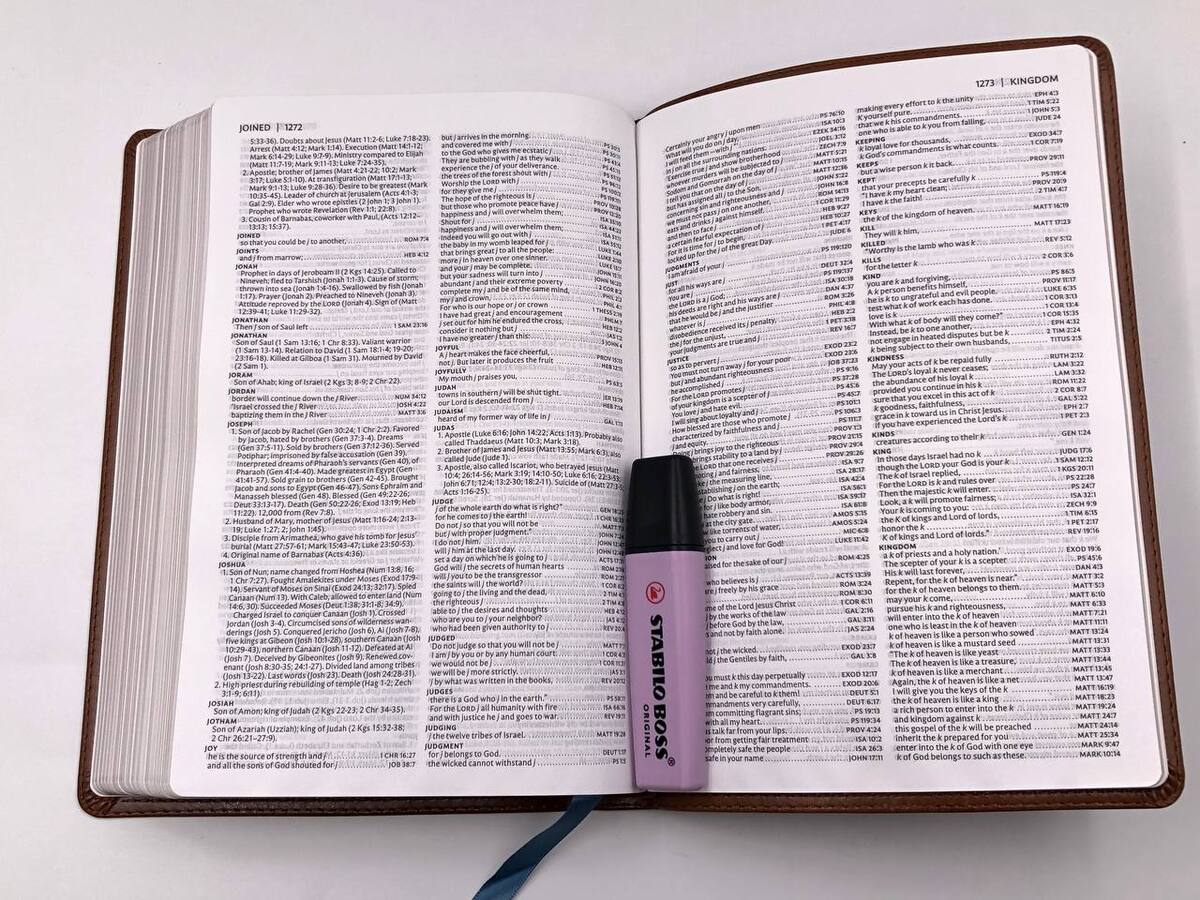 JOINED | 1272
5:33-36). Doubts about Jesus (Matt 11:2-6; Luke 7:18-23).
Arrest (Matt 4:12; Mark 1:14). Execution (Matt 14:1-12;
Mark 6:14-29; Luke 9:7-9). Ministry compared to Elijah
(Matt 11:7-19; Mark 9:11-13; Luke 7:24-35).
2. Apostle; brother of James (Matt 4:21-22; 10:2; Mark
3:17; Luke 5:1-10). At transfiguration (Matt 17:1-13;
Mark 9:1-13; Luke 9:28-36). Desire to be greatest (Mark
10:35-45). Leader of church at Jerusalem (Acts 4:1-3;
Gal 2:9). Elder who wrote epistles (2 John 1; 3 John 1).
Prophet who wrote Revelation (Rev 1:1; 22:8).
3. Cousin of Barnabas, coworker with Paul, (Acts 12:12–
13:13; 15:37).
JOINED
so that you could be j to another, ROM 7:4
JOINTS
and j from marrow; HEB 4:12
JONAH
Prophet in days of Jeroboam II (2 Kgs 14:25). Called to
Nineveh; fled to Tarshish (Jonah 1:1-3). Cause of storm;
thrown into sea (Jonah 1:4-16). Swallowed by fish (Jonah
1:17). Prayer (Jonah 2). Preached to Nineveh (Jonah 3).
Attitude reproved by the LORD (Jonah 4). Sign of (Matt
12:39-41; Luke 11:29-32).
JONATHAN
Then j son of Saul left 1 SAM 23:16
JONATHAN
Son of Saul (1 Sam 13:16; 1 Chr 8:33). Valiant warrior
(1 Sam 13-14). Relation to David (1 Sam 18:1-4; 19-20;
23:16-18). Killed at Gilboa (1 Sam 31). Mourned by David
(2 Sam 1).
JORAM
Son of Ahab; king of Israel (2 Kgs 3; 8-9; 2 Chr 22).
JORDAN
border will continue down the J River NUM 34:12
'Israel crossed the J River JOSH 4:22
baptizing them in the J River MATT 3:6
JOSEPH
1. Son of Jacob by Rachel (Gen 30:24; 1 Chr 2:2). Favored
by Jacob, hated by brothers (Gen 37:3-4). Dreams
(Gen 37:5-11). Sold by brothers (Gen 37:12-36). Served
Potiphar; imprisoned by false accusation (Gen 39).
Interpreted dreams of Pharaoh's servants (Gen 40), of
Pharaoh (Gen 41:4-40). Made greatest in Egypt (Gen
41:41-57). Sold grain to brothers (Gen 42-45). Brought
Jacob and sons to Egypt (Gen 46-47). Sons Ephraim and
Manasseh blessed (Gen 48). Blessed (Gen 49:22-26;
Deut 33:13-17). Death (Gen 50:22-26; Exod 13:19; Heb
11:22). 12,000 from (Rev 7:8).
2. Husband of Mary, mother of Jesus (Matt 1:16-24; 2:13-
19; Luke 1:27; 2; John 1:45).
3. Disciple from Arimathea, who gave his tomb for Jesus'
burial (Matt 27:57-61; Mark 15:43-47; Luke 23:50-53).
4. Original name of Barnabas (Acts 4:36).
JOSHUA
1. Son of Nun; name changed from Hoshea (Num 13:8, 16;
1 Chr 7:27). Fought Amalekites under Moses (Exod 17:9-
14). Servant of Moses on Sinai (Exod 24:13; 32:17). Spied
Canaan (Num 13). With Caleb, allowed to enter land (Num
14:6, 30). Succeeded Moses (Deut 1:38; 31:1-8; 34:9).
Charged Israel to conquer Canaan (Josh 1). Crossed
Jordan (Josh 3-4). Circumcised sons of wilderness wan-
derings (Josh 5). Conquered Jericho (Josh 6), Ai (Josh 7-8),
five kings at Gibeon (Josh 10:1-28), southern Canaan (Josh
10:29-43), northern Canaan (Josh 11-12). Defeated at Ai
(Josh 7). Deceived by Gibeonites (Josh 9). Renewed cov-
enant (Josh 8:30-35; 24:1-27). Divided land among tribes
(Josh 13-22). Last words (Josh 23). Death (Josh 24:28-31).
2. High priest during rebuilding of temple (Hag 1-2; Zech
3:1-9; 6:11).
JOSIAH
Son of Amon; king of Judah (2 Kgs 22-23; 2 Chr 34-35).
JOTHAM
Son of Azariah (Uzziah); king of Judah (2 Kgs 15:32-38;
2 Chr 26:21–27:9).
JOY
he is the source of strength and j 1 CHR 16:27
and all the sons of God shouted for j JOB 38:7
but j arrives in the morning.
and covered me with j
to the God who gives me ecstatic j
They are bubbling with j as they walk
experience the j of your deliverance.
the trees of the forest shout with j
Worship the LORD with j
for they give me j
The hope of the righteous is j
but those who promote peace have j
happiness and j will overwhelm them;
Shout for j
happiness and j will overwhelm them;
Indeed you will go out with j
the baby in my womb leaped for j
that brings great j to all the people:
more j in heaven over one sinner
and your j may be complete.
but your sadness will turn into j
abundant j and their extreme poverty
complete my j and be of the same mind,
my j and crown
For who is our hope or j or crown
I have had great j and encouragement
j set out for him he endured the cross,
consider it nothing but j
I have no greater j than this:
JOYFUL
A j heart makes the face cheerful,
not j. But later it produces the fruit
JOYFULLY
My mouth j praises you,
JUDAH
towns in southern J will be shut tight.
our Lord is descended from J
JUDAISM
heard of my former way of life in J
JUDAS
1. Apostle (Luke 6:16; John 14:22; Acts 1:13). Probably also
called Thaddaeus (Matt 10:3; Mark 3:18).
2. Brother of James and Jesus (Matt 13:55; Mark 6:3), also
called Jude (Jude 1).
3. Apostle, also called Iscariot, who betrayed Jesus (Matt
10:4; 26:14-56; Mark 3:19; 14:10-50; Luke 6:16; 22:3-53;
John 6:71; 12:4; 13:2-30; 18:2-11). Suicide of (Matt 27:3-
Acts 1:16-25).
JUDGE
J of the whole earth do what is right?"
for he comes to j the earth!
Do not j so that you will not be
but j with proper judgment."
I do not j him.
will j him at the last day.
set a day on which he is going to j
God will j the secrets of human hearts
will j you to be the transgressor
the saints will j the world?
going to j the living and the dead,
the righteous J
able to j the desires and thoughts
who are you to j your neighbor?
who had been given authority to j
JUDGED
Do not judge so that you will not be j
I am j by you or by any human court.
we would not be j
we will be j more strictly.
j by what was written in the books,
JUDGES
there is a God who j in the earth."
For the LORD j all humanity with fire
and with justice he j and goes to war.
JUDGING
j the twelve tribes of Israel. MATT 19:28
JUDGMENT
for j belongs to God. DEUT 1:17
the wicked cannot withstand j PS 1:5
1273 | KINGDOM
Certainly your angry j upon men PS 76:10
What will you do on j day, ISA 10:3
I will feed them – with j!" EZEK 34:16
in j on all the surrounding nations. JOEL 3:12
Exercise true j and show brotherhood ZECH 7:9
whoever murders will be subjected to j MATT 5:21
Sodom and Gomorrah on the day of j MATT 10:15
I tell you that on the day of j MATT 12:36
but has assigned all j to the Son, JOHN 5:22
concerning sin and righteousness and j JOHN 16:8
we must not pass j on one another, ROM 14:13
eats and drinks j against himself. 1 COR 11:29
and then to face j HEB 9:27
a certain fearful expectation of j HEB 10:27
For it is time for j to begin, 1 PET 4:17
locked up for the j of the great Day. JUDE 6
JUDGMENTS
I am afraid of your j PS 119:120
JUST
for all his ways are j DEUT 32:4
You are j PS 119:137
the LORD is a j God; ISA 30:18
his deeds are right and his ways are j DAN 4:37
that he would be j and the justifier ROM 3:26
whatever is j PHIL 4:8
disobedience received its j penalty, HEB 2:2
the j for the unjust, 1 PET 3:18
your judgments are true and j REV 16:7
JUSTICE
so as to pervert j EXOD 23:2
You must not turn away j for your poor EXOD 23:6
but j and abundant righteousness JOB 37:23
he accomplished j PS 9:16
For the LORD promotes j PS 37:28
of your kingdom is a scepter of j PS 45:6
You love j and hate evil. PS 45:7
I will sing about loyalty and j PS 101:1
How blessed are those who promote j PS 106:3
characterized by faithfulness and j PS 111:7
j and equity. PROV 1:3
brings joy to the righteous PROV 21:15
brings stability to a land by j PROV 29:4
LORD that one receives j PROV 29:26
j and fairness, ISA 9:7
the measuring line, ISA 28:17
establishing j on the earth; ISA 42:4
Do what is right! ISA 56:1
for j like body armor, ISA 59:17
hate robbery and sin. ISA 61:8
at the city gate. AMOS 5:15
like torrents of water, AMOS 5:24
you to carry out j MIC 6:8
neglect j and love for God! LUKE 11:42
raised for the sake of our j ROM 4:25
who believes is j ACTS 13:39
are j freely by his grace ROM 3:24
ROM 8:30
name of the Lord Jesus Christ 1 COR 6:11
j by the works of the law GAL 2:16
j before God by the law, GAL 3:11
and not by faith alone. JAS 2:24
not j the wicked. EXOD 23:7
j the Gentiles by faith, GAL 3:8
you must k this day perpetually EXOD 12:17
me and k my commandments. EXOD 20:6
and be careful to k them! DEUT 5:1
commandments very carefully, DEUT 6:17
committing flagrant sins; PS 19:13
with all my heart. PS 119:34
talk far from your lips. PROV 4:24
from getting fair treatment ISA 10:2
completely safe the people ISA 26:3
safe in your name JOHN 17:11
making every effort to k the unity EPH 4:3
K yourself pure. 1 TIM 5:22
that we k his commandments. 1 JOHN 5:3
one who is able to k you from falling, JUDE 24
KEEPING
k loyal love for thousands, EXOD 34:7
k God's commandments is what counts. 1 COR 7:19
KEEPS
but a wise person k it back. PROV 29:11
KEPT
that your precepts be carefully k PS 119:4
"I have k my heart clean; PROV 20:9
I have k the faith! 2 TIM 4:7
KEYS
the k of the kingdom of heaven. MATT 16:19
KILL
They will k him, MATT 17:23
KILLED
"Worthy is the lamb who was k REV 5:12
KILLS
for the letter k 2 COR 3:6
KIND
you are k and forgiving, PS 86:5
A k person benefits himself, PROV 11:17
he is k to ungrateful and evil people. LUKE 6:35
test what k of work each has done. 1 COR 3:13
love is k 1 COR 13:4
With what k of body will they come?" 1 COR 15:35
Instead, be k to one another, EPH 4:32
not engage in heated disputes but be k 2 TIM 2:24
k being subject to their own husbands, TITUS 2:5
KINDNESS
May your acts of k be repaid fully RUTH 2:12
The LORD's loyal k never ceases; LAM 3:22
the abundance of his loyal k LAM 3:32
provided you continue in his k ROM 11:22
sure that you excel in this act of k 2 COR 8:7
k goodness, faithfulness, GAL 5:22
grace in k toward us in Christ Jesus. EPH 2:7
if you have experienced the Lord's k 1 PET 2:3
KINDS
creatures according to their k GEN 1:24
KING
In those days Israel had no k JUDG 17:6
though the LORD your God is your k 1 SAM 12:12
The k of Israel replied, 1 KGS 20:11
For the LORD is k and rules over PS 22:28
Then the majestic k will enter. PS 24:7
Look, a k will promote fairness; ISA 32:1
Your k is coming to you: ZECH 9:9
the K of kings and Lord of lords, 1 TIM 6:15
honor the k 1 PET 2:17
"K of kings and Lord of lords." REV 19:16
KINGDOM
a k of priests and a holy nation.' EXOD 19:6
The scepter of your k is a scepter PS 45:6
His k will last forever, DAN 4:3
Repent, for the k of heaven is near." MATT 3:2
for the k of heaven belongs to them. MATT 5:3
may your k come, MATT 6:10
pursue his k and righteousness, MATT 6:33
will enter into the k of heaven MATT 7:21
one who is least in the k of heaven MATT 11:11
k of heaven is like a person who sowed MATT 13:24
k of heaven is like a mustard seed MATT 13:31
"The k of heaven is like yeast MATT 13:33
"The k of heaven is like a treasure, MATT 13:44
k of heaven is like a merchant MATT 13:45
Again, the k of heaven is like a net MATT 13:47
I will give you the keys of the k MATT 16:19
the k of heaven is like a king MATT 18:23
a rich person to enter into the k MATT 19:24
and kingdom against k MATT 24:7
this gospel of the k will be preached MATT 24:14
inherit the k prepared for you MATT 25:34
enter into the k of God with one eye MARK 9:47
k of God belongs to such as these. MARK 10:14
STABILO BOSS®
ORIGINAL